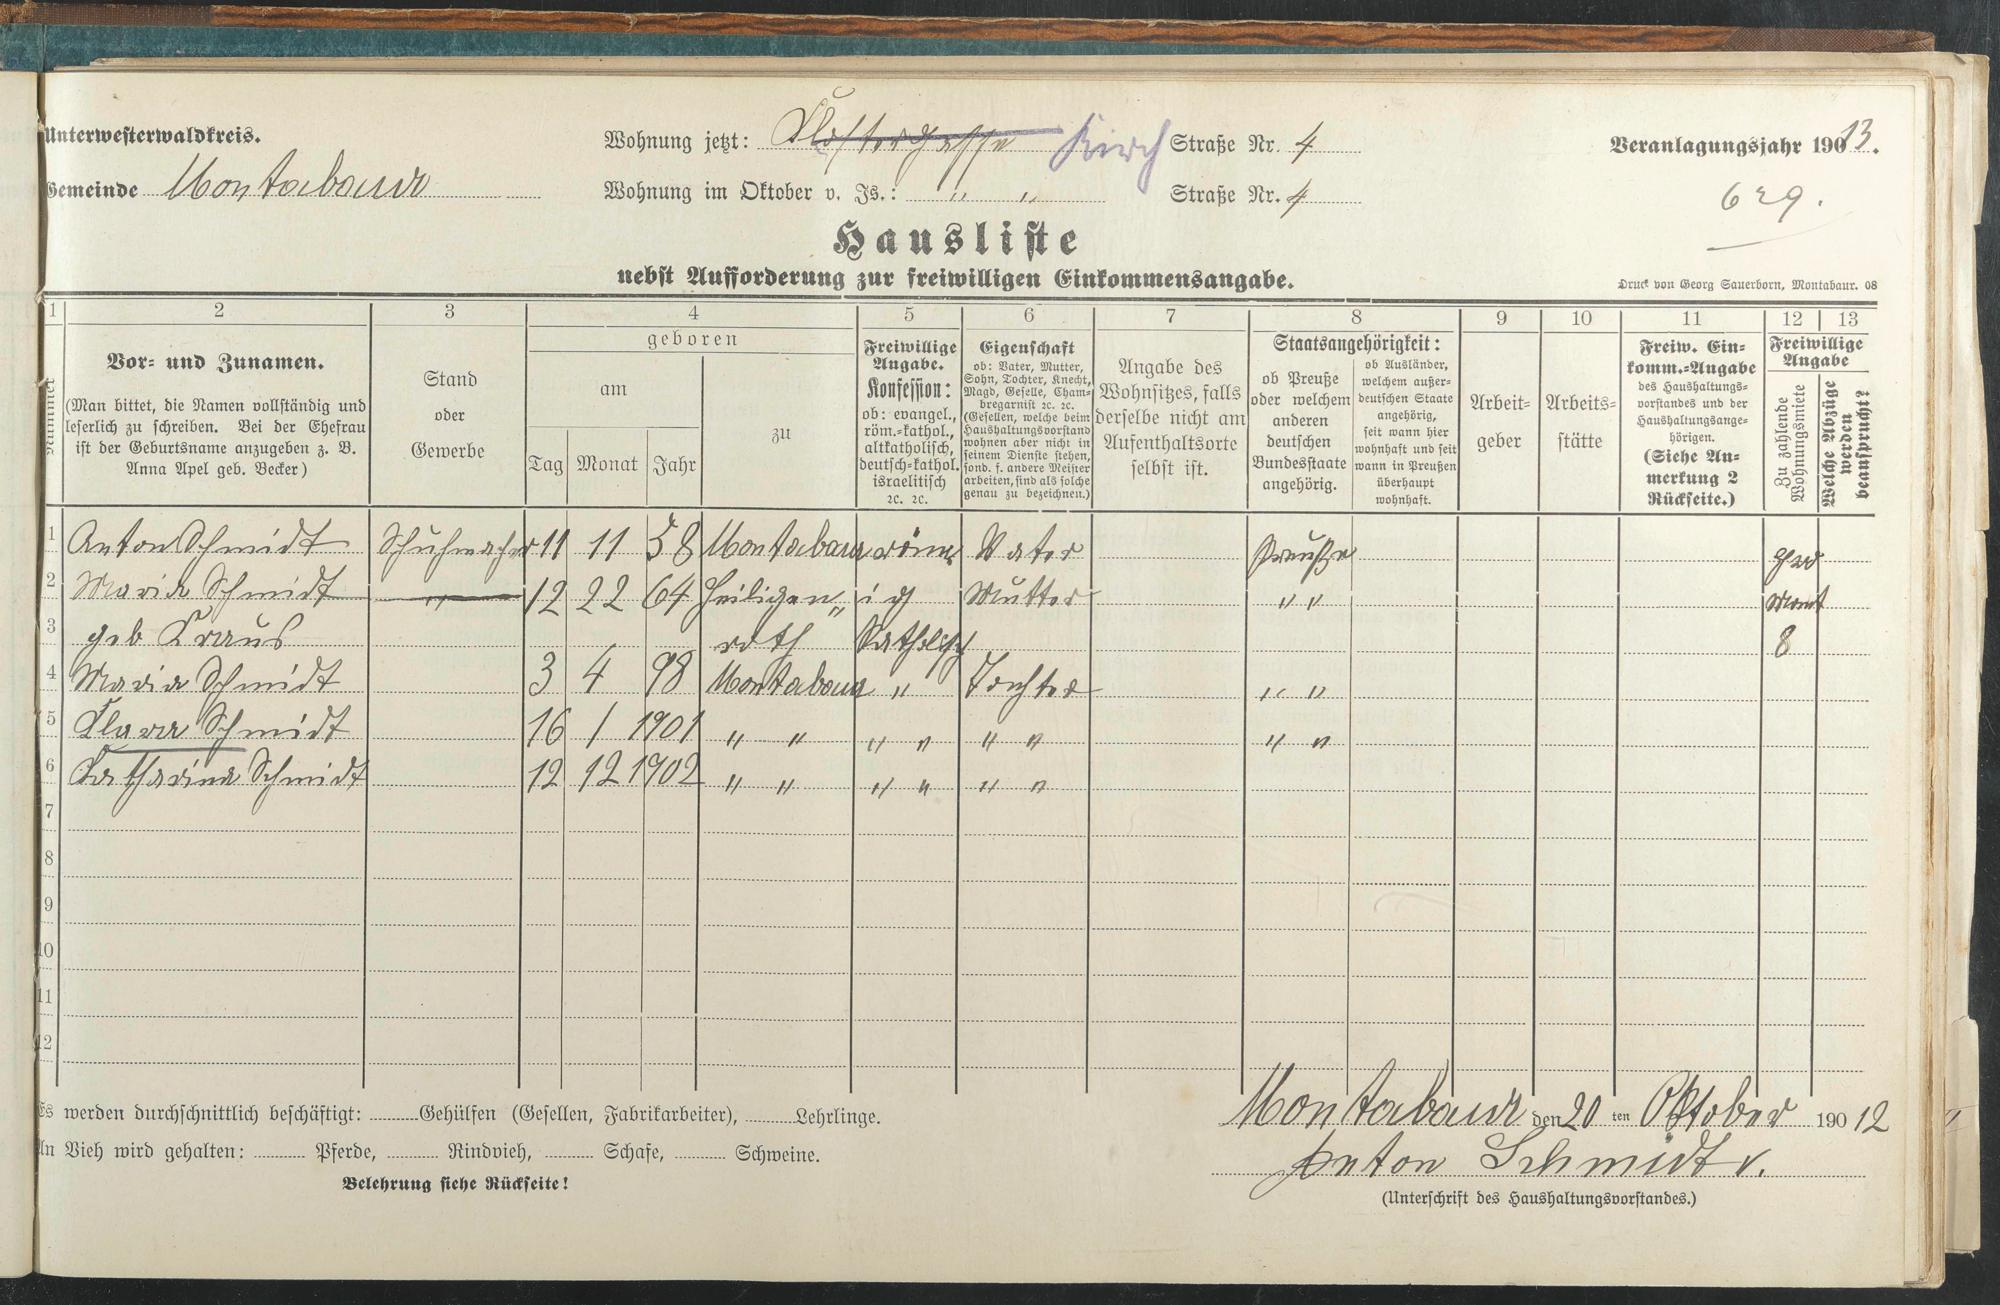 Unterwesterwaldkreis.
Gemeinde Montabaur
Wohnung jetzt: Klostergasse Kirch Straße Nr. 4
Wohnung im Oktober v. Js.: " " Straße Nr. 4
Veranlagungsjahr 1913.
629.
Hausliste
nebst Aufforderung zur freiwilligen Einkommensangabe.
Druck von Georg Sauerborn, Montabaur. 08
1 2 3 4 5 6 7 8 9 10 11 12 13
Nummer
Vor- und Zunamen.
(Man bittet, die Namen vollständig und
leserlich zu schreiben. Bei der Ehefrau
ist der Geburtsname anzugeben z. B.
Anna Apel geb. Becker)
Stand
oder
Gewerbe
geboren
am
Tag Monat Jahr
zu
Freiwillige
Angabe.
Konfession:
ob: evangel.,
röm.-kathol.,
altkatholisch,
deutsch-kathol.
israelitisch
ꝛc. ꝛc.
Eigenschaft
ob: Vater, Mutter,
Sohn, Tochter, Knecht,
Magd, Geselle, Cham-
bregarnist ꝛc. ꝛc.
(Gesellen, welche beim
Haushaltungsvorstand
wohnen aber nicht in
seinem Dienste stehen,
sond. f. andere Meister
arbeiten, sind als solche
genau zu bezeichnen.)
Angabe des
Wohnsitzes, falls
derselbe nicht am
Aufenthaltsorte
selbst ist.
Staatsangehörigkeit:
ob Preuße
oder welchem
anderen
deutschen
Bundesstaate
angehörig.
ob Ausländer,
welchem außer-
deutschen Staate
angehörig,
seit wann hier
wohnhaft und seit
wann in Preußen
überhaupt
wohnhaft.
Arbeit-
geber
Arbeits-
stätte
Freiw. Ein-
komm.-Angabe
des Haushaltungs-
vorstandes und der
Haushaltungsange-
hörigen.
(Siehe An-
merkung 2
Rückseite.)
Freiwillige
Angabe
Zu zahlende
Wohnungsmiete
Welche Abzüge
werden
beansprucht?
1 Anton Schmidt Schuhmacher 11 11 58 Montabaur röm Vater Preuße pro
2 Maria Schmidt " 12 22 64 Heiligen" ig Mutter " " Mont
3 geb Kraus roth Katholisch 8
4 Maria Schmidt 3 4 98 Montabaur " Tochter " "
5 Klara Schmidt 16 1 1901 " " " " " " " "
6 Katharina Schmidt 12 12 1902 " " " " " "
7
8
9
10
11
12
Es werden durchschnittlich beschäftigt: Gehülfen (Gesellen, Fabrikarbeiter), Lehrlinge.
An Vieh wird gehalten: Pferde, Rindvieh, Schafe, Schweine.
Belehrung siehe Rückseite!
Montabaur den 20 ten Oktober 190 12
Anton Schmidt v.
(Unterschrift des Haushaltungsvorstandes.)